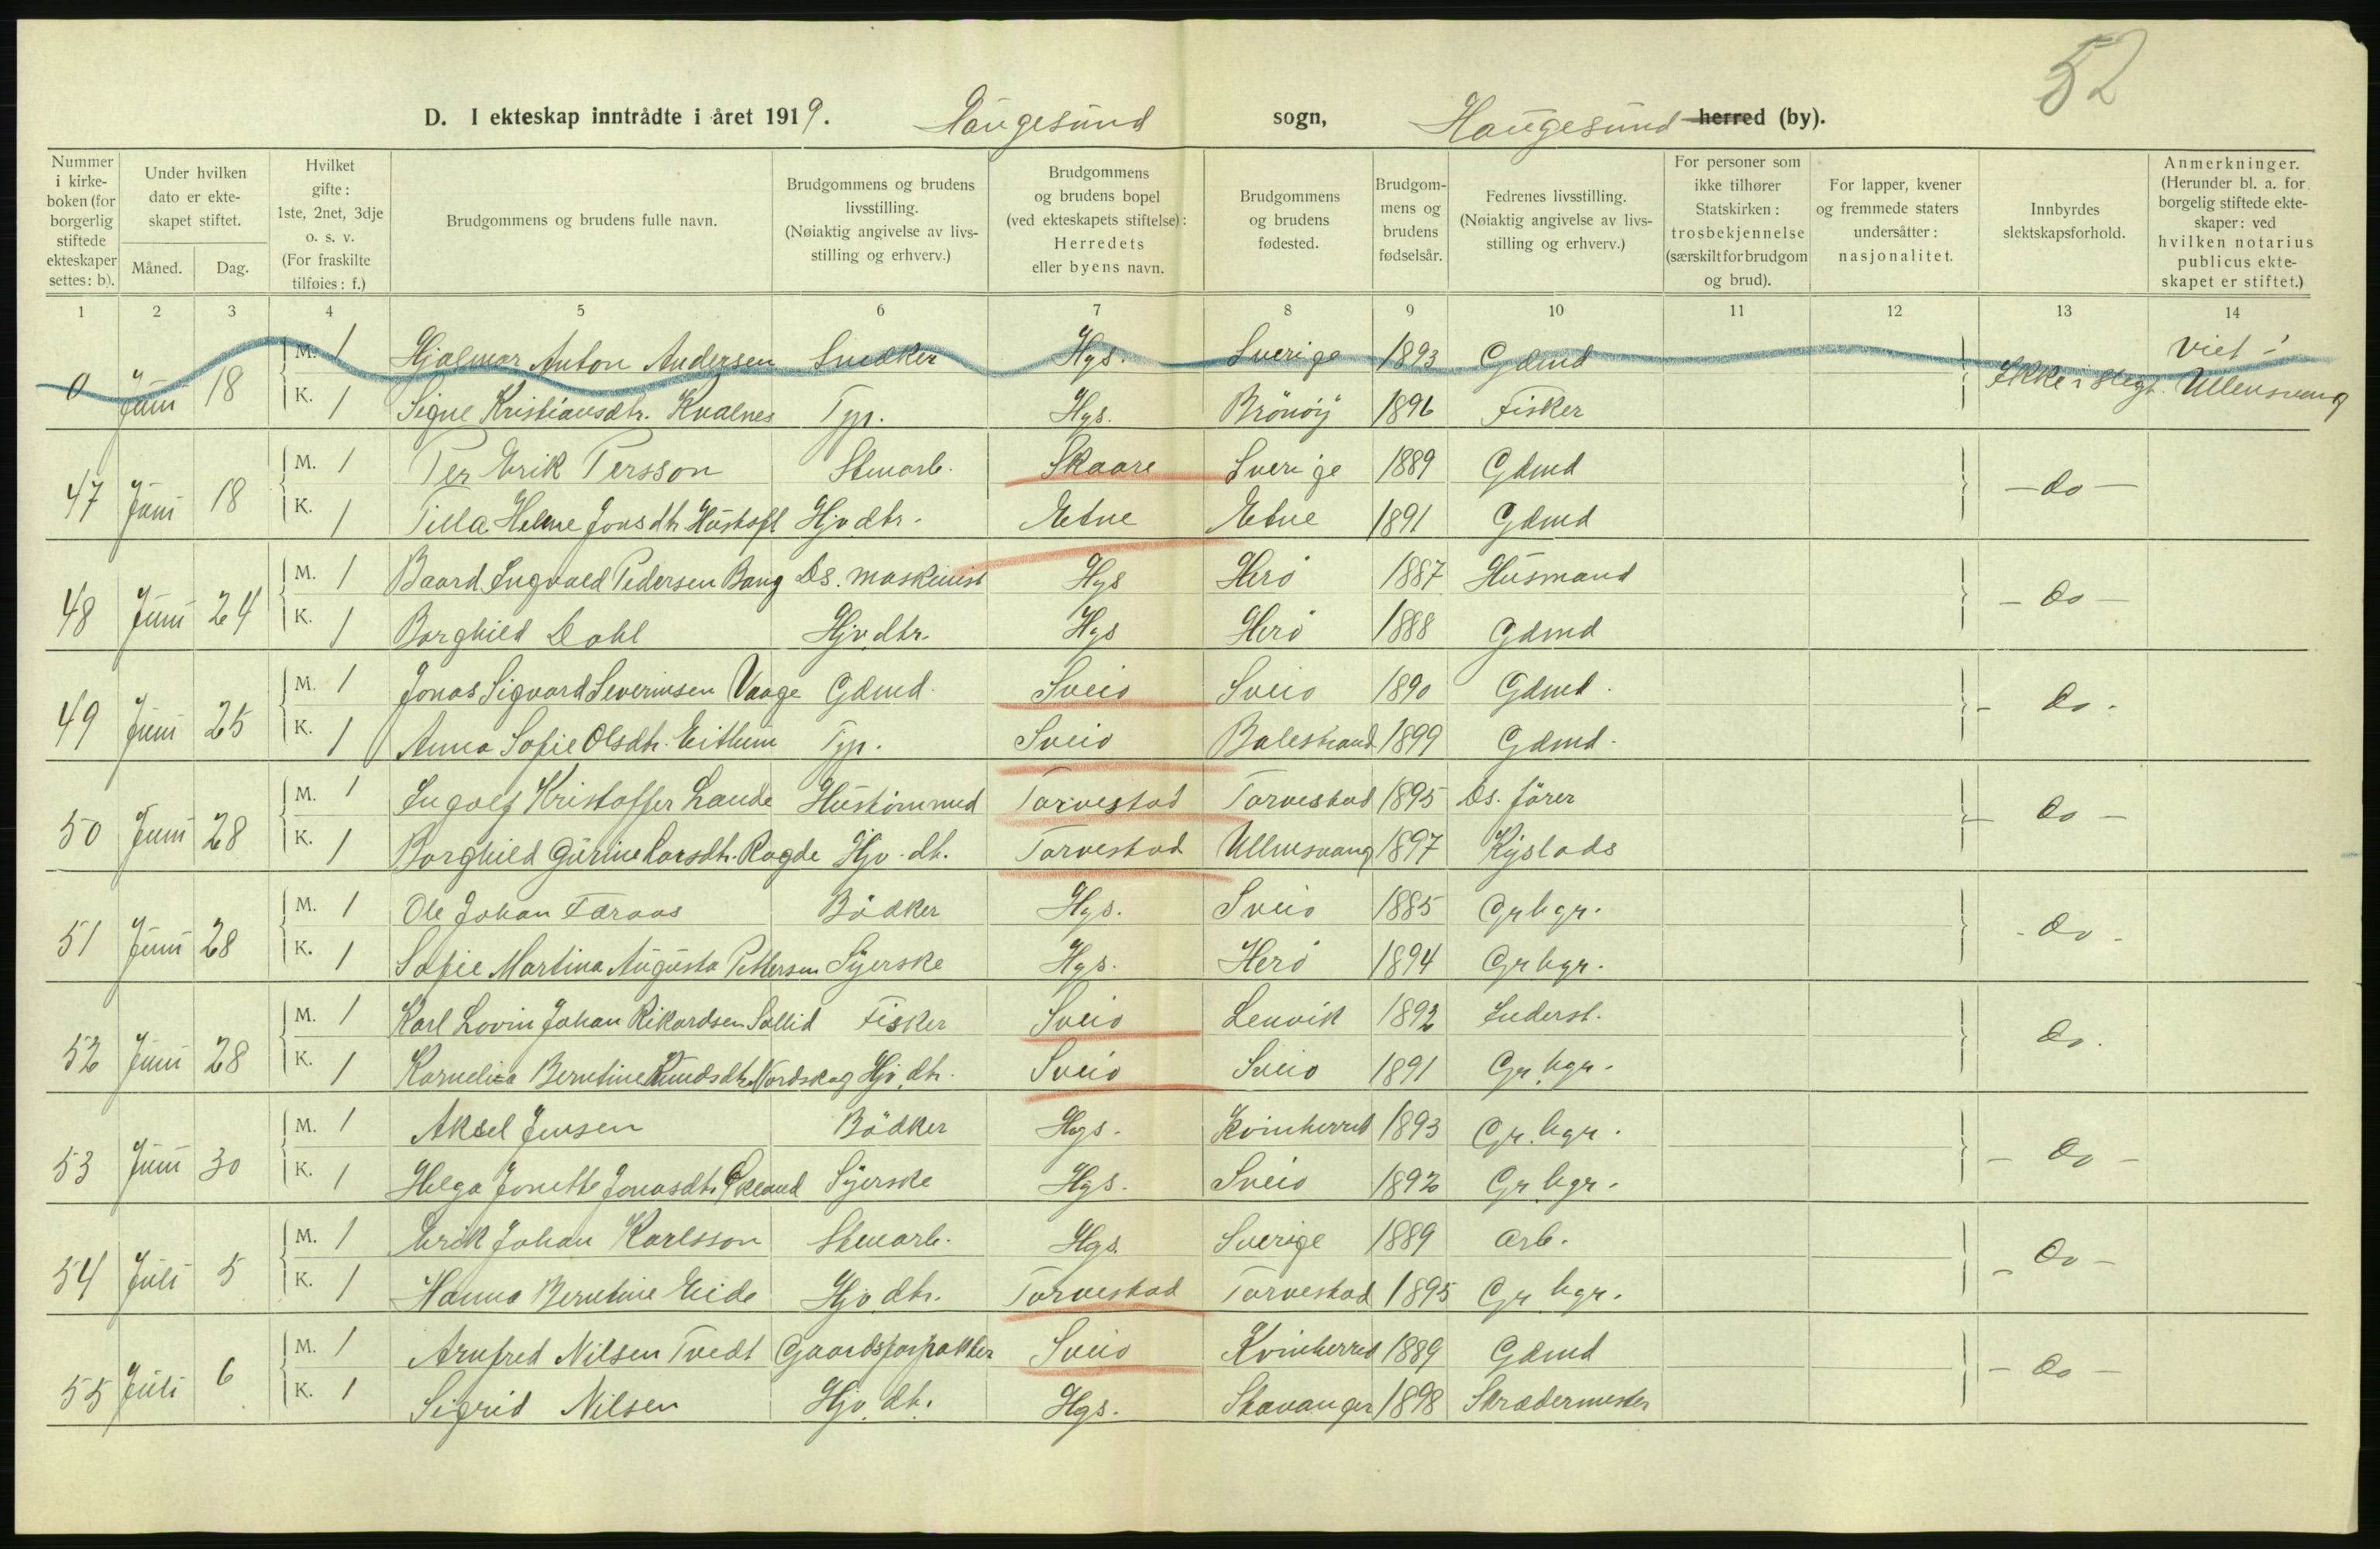 52
D. I ekteskap inntrådte i året 1919. Haugesund sogn, Haugesund herred (by).
Nummer i kirkeboken (for borgerlig stiftede ekteskaper settes: b).
Under hvilken dato er ekteskapet stiftet.
Måned. Dag.
Hvilket gifte: 1ste, 2net, 3dje o. s. v. (For fraskilte tilføies: f.)
Brudgommens og brudens fulle navn.
Brudgommens og brudens livsstilling. (Nøiaktig angivelse av livsstilling og erhverv.)
Brudgommens og brudens bopel (ved ekteskapets stiftelse): Herredets eller byens navn.
Brudgommens og brudens fødested.
Brudgommens og brudens fødselsår.
Fedrenes livsstilling. (Nøiaktig angivelse av livsstilling og erhverv.)
For personer som ikke tilhører Statskirken: trosbekjennelse (særskilt for brudgom og brud).
For lapper, kvener og fremmede staters undersåtter: nasjonalitet.
Innbyrdes slektskapsforhold.
Anmerkninger. (Herunder bl. a. for borgelig stiftede ekteskaper: ved hvilken notarius publicus ekteskapet er stiftet.)
1 2 3 4 5 6 7 8 9 10 11 12 13 14
0 Juni 18 M. 1 Hjalmar Anton Andersen Snedker Hgs. Sverige 1893 Gdmd Ikke i slegt Viet i Ullensvang
K. 1 Signe Kristiansdtr. Kvalnes Typ. Hgs. Brönöy 1896 Fisker
47 Juni 18 M. 1 Per Erik Persson Stenarb. Skaare Sverige 1889 Gdmd - do -
K. 1 Tilla Helene Jonsdtr Hustoft Hjv. dtr. Etne Etne 1891 Gdmd
48 Juni 24 M. 1 Baard Ingvald Pedersen Bang Ds. maskinist Hgs Herö 1887 Husmand - do -
K. 1 Borghild Dahl Hjv. dtr. Hgs Herö 1888 Gdmd
49 Juni 25 M. 1 Jonas Sigvard Severinsen Vaage Gdmd. Sveio Sveio 1890 Gdmd. - do -
K. 1 Anna Sofie Olsdtr. Eithun Typ. Sveio Balestrand 1899 Gdmd.
50 Juni 28 M. 1 Ingolf Kristoffer Lande Torvestad Torvestad 1895 Ds. förer - do -
K. 1 Borghild Gurine Larsdtr. Ragde Hjv. dtr. Torvestad Ullensvang 1897 Kyslods
51 Juni 28 M. 1 Ole Johan Færaas Bödker Hgs. Sveio 1885 Grbgr. - do -
K. 1 Sofie Martina Augusta Pettersen Syerske Hgs. Herö 1894 Grbgr.
52 Juni 28 M. 1 Karl Lovin Johan Rikardsen Sollid Fisker Sveio Lenvik 1892 Inderst. do.
K. 1 Kornelia Berntine Knudsdtr. Nordskog Hjv. dtr. Sveio Sveio 1891 Gr. bgr.
53 Juni 30 M. 1 Aksel Jensen Bödker Hgs. Kvinherred 1893 Gr. bgr. - do -
K. 1 Helga Jonette Jonasdtr. Økland Syerske Hgs. Sveio 1892 Gr bgr.
54 Juli 5 M. 1 Erik Johan Karlsson Stenarb. Hgs. Sverige 1889 Arb. - do -
K. 1 Hanna Berntine Eide Hjv. dtr. Torvestad Torvestad 1895 Gr bgr.
55 Juli 6 M. 1 Arnfred Nilsen Tvedt Gaardsforpakter Sveio Kvinherred 1889 Gdmd - do -
K. 1 Sigrid Nilsen Hjv. dtr. Hgs. Stavanger 1898 Skrædermester